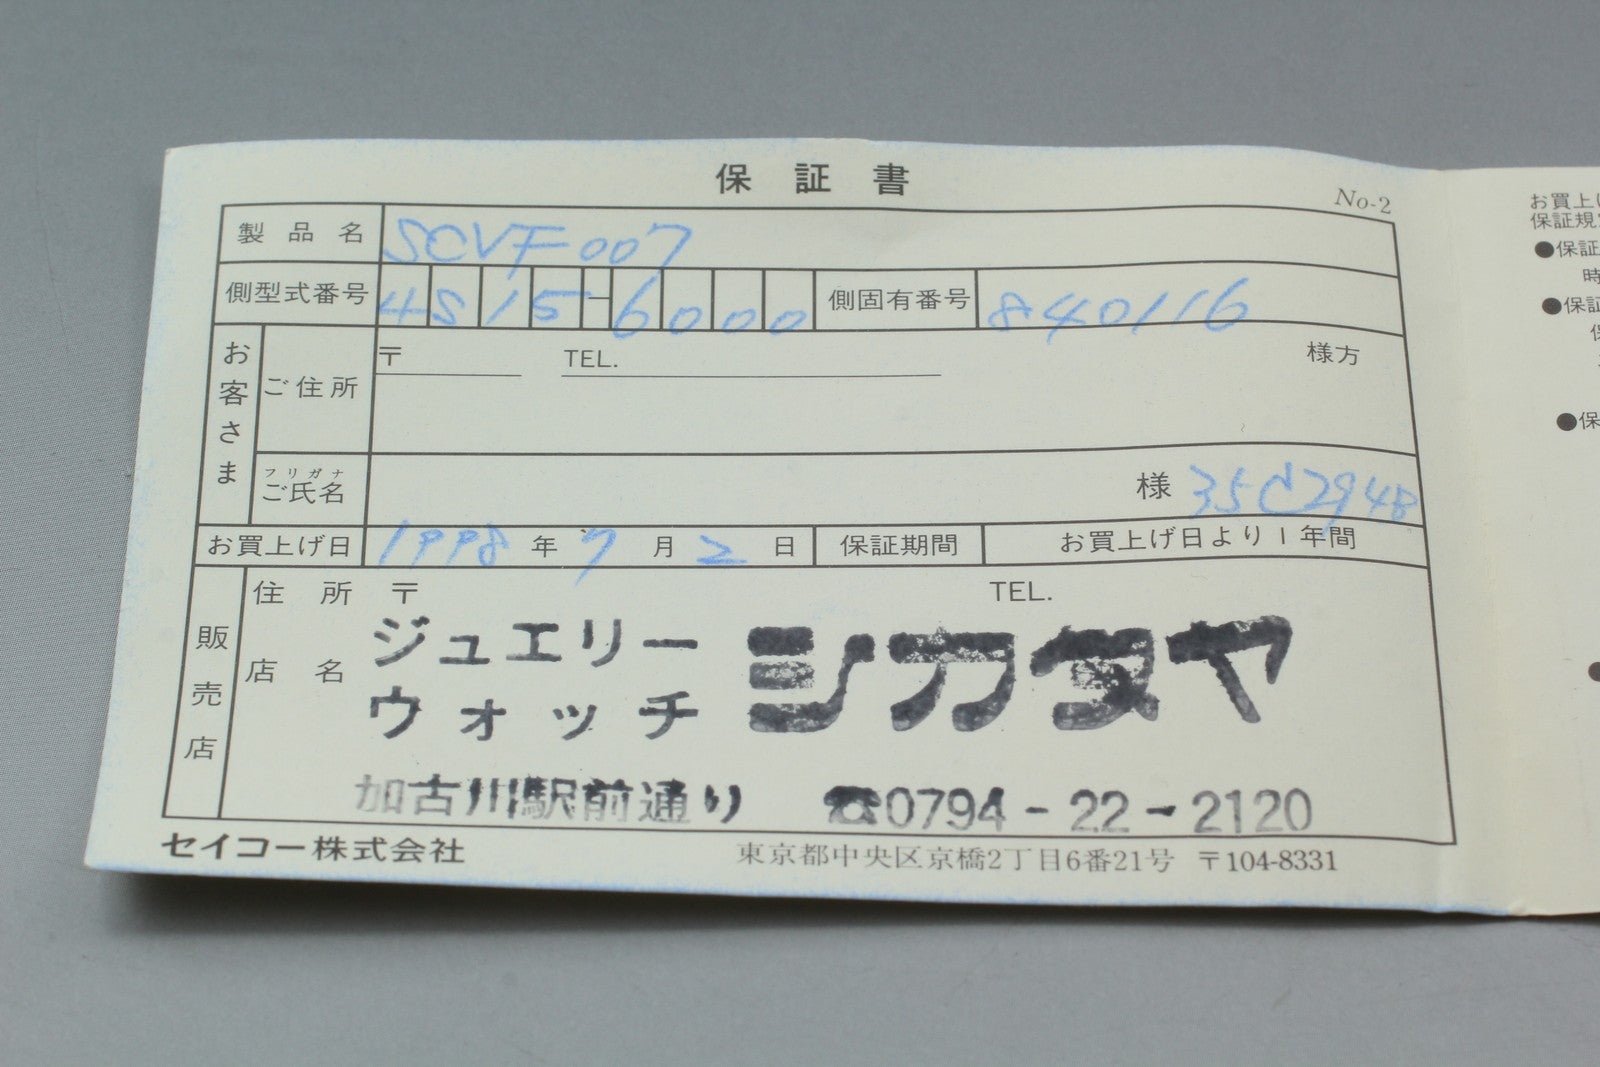 保証書
No-2
製品名 SCVF007
側型式番号 4S15-6000 側固有番号 840116
お客さま
ご住所 〒 TEL. 様方
フリガナ
ご氏名 様 35C2948
お買上げ日 1998年7月2日 保証期間 お買上げ日より1年間
販売店
住所 〒 TEL.
店名
ジュエリー
ウォッチ
シカタヤ
加古川駅前通り ☎0794-22-2120
セイコー株式会社 東京都中央区京橋2丁目6番21号 〒104-8331
お買上げ
保証規
●保証
時
●保証
●保